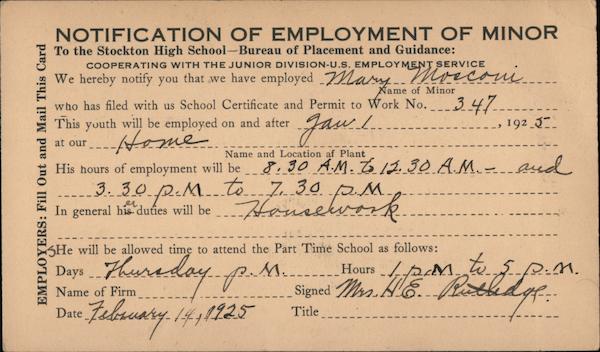 NOTIFICATION OF EMPLOYMENT OF MINOR
To the Stockton High School—Bureau of Placement and Guidance:
COOPERATING WITH THE JUNIOR DIVISION-U.S. EMPLOYMENT SERVICE
We hereby notify you that we have employed Mary Mosconi
Name of Minor
who has filed with us School Certificate and Permit to Work No. 347
This youth will be employed on and after Jan 1, 1925
at our Home
Name and Location of Plant
His hours of employment will be 8.30 A.M. to 12.30 A.M. - and
3.30 P.M to 7.30 P.M
In general his er duties will be Housework
SHe will be allowed time to attend the Part Time School as follows:
Days Thursday P.M. Hours 1 P.M to 5 P.M.
Name of Firm Signed Mrs H E Rutledge
Date February 14, 1925 Title
EMPLOYERS: Fill Out and Mail This Card